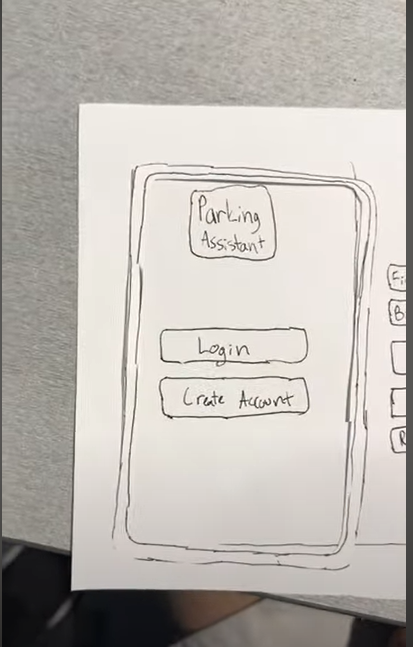 Parking
Assistant
Login
Create Account
Fi
B
R